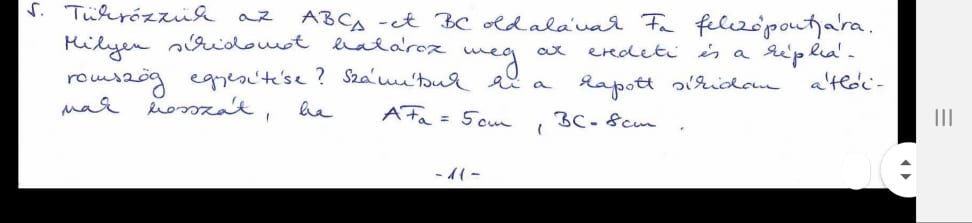 5. Tükrözzük az ABC△ -et BC oldalának Fa felezőpontjára.
Milyen síkidomot határoz meg az eredeti és a képhá-
romszög egyesítése? Számítsuk ki a kapott síkidom átlói-
nak hosszát, ha AFa = 5cm, BC = 8cm.
-11-